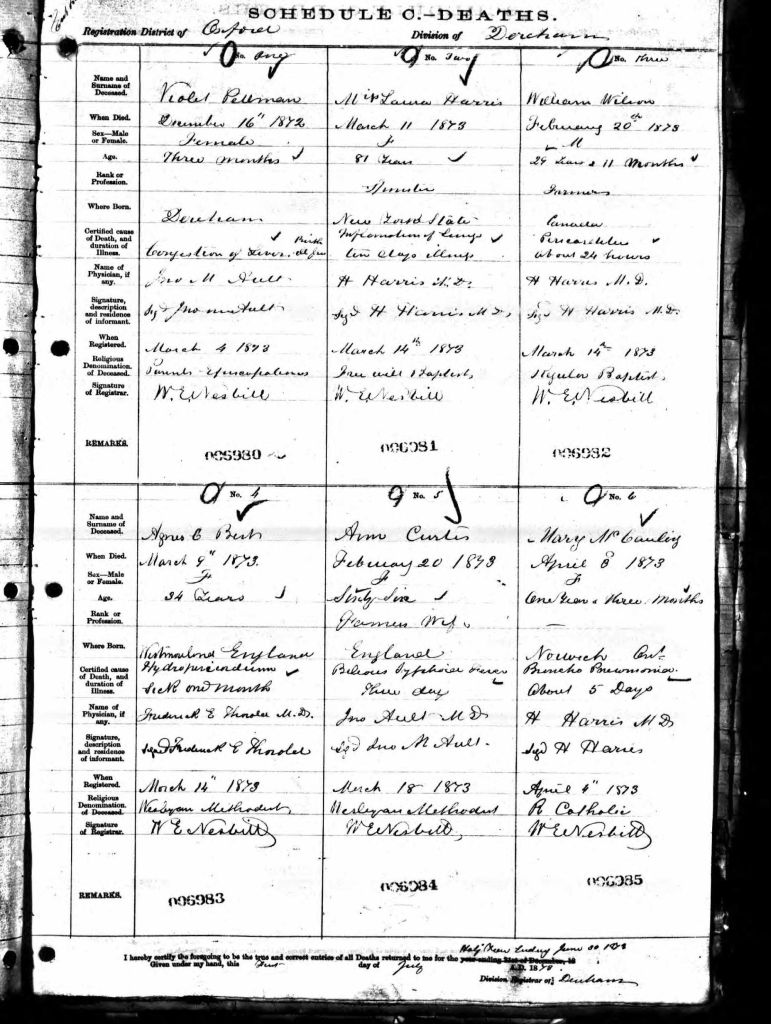 SCHEDULE C.—DEATHS.
Registration District of Oxford Division of Dereham
No. One No. Two No. three
Name and Surname of Deceased. Violet Pellman Mrs Laura Harris William Wilson
When Died. December 16" 1872 March 11 1873 February 20th 1873
Sex—Male or Female. Female F M
Age. Three months 81 Years 29 Years & 11 Months
Rank or Profession. Farmers
Where Born. Dereham New York State Canada
Certified cause of Death, and duration of Illness. Congestion of Liver. Inflamation of Lungs
ten days illness about 24 hours
Name of Physician, if any. Jno M Ault H Harris M.D. H Harris M.D.
Signature, description and residence of informant. Sgd Jno M Ault Sgd H Harris M.D. Sgd H Harris M.D.
When Registered. March 4 1873 March 14th 1873 March 14th 1873
Religious Denomination of Deceased. Parents Episcopalians Free will Baptist Regular Baptist
Signature of Registrar. W. E. Nesbitt W. E. Nesbitt W. E. Nesbitt
REMARKS. 006980 006981 006982
No. 4 No. 5 No. 6
Name and Surname of Deceased. Agnes C Best Ann Curtis Mary McCauley
When Died. March 9" 1873. February 20 1873 April 3 1873
Sex—Male or Female. F F F
Age. 34 Years Sixty Six One Year & three Months
Rank or Profession. Farmers Wife —
Where Born. Westmorland England England Norwich Ont.
Certified cause of Death, and duration of Illness. Hydropericardium Bilious Typhoid Fever Broncho Pneumonia
Sick one month three day About 5 Days
Name of Physician, if any. Frederick E Thorold M.D. Jno Ault M D H Harris M D
Signature, description and residence of informant. Sgd Frederick E Thorold Sgd Jno M Ault. Sgd H Harris
When Registered. March 14" 1873 March 18 1873 April 4" 1873
Religious Denomination of Deceased. Wesleyan Methodist Wesleyan Methodist R Catholic
Signature of Registrar. W E Nesbitt W E Nesbitt W E Nesbitt
REMARKS. 006983 006984 006985
Half Year Ending June 30 1873
I hereby certify the foregoing to be the true and correct entries of all Deaths returned to me for the year ending 31st of December, 18
Given under my hand, this First day of July A.D. 187
Division Registrar of Dereham